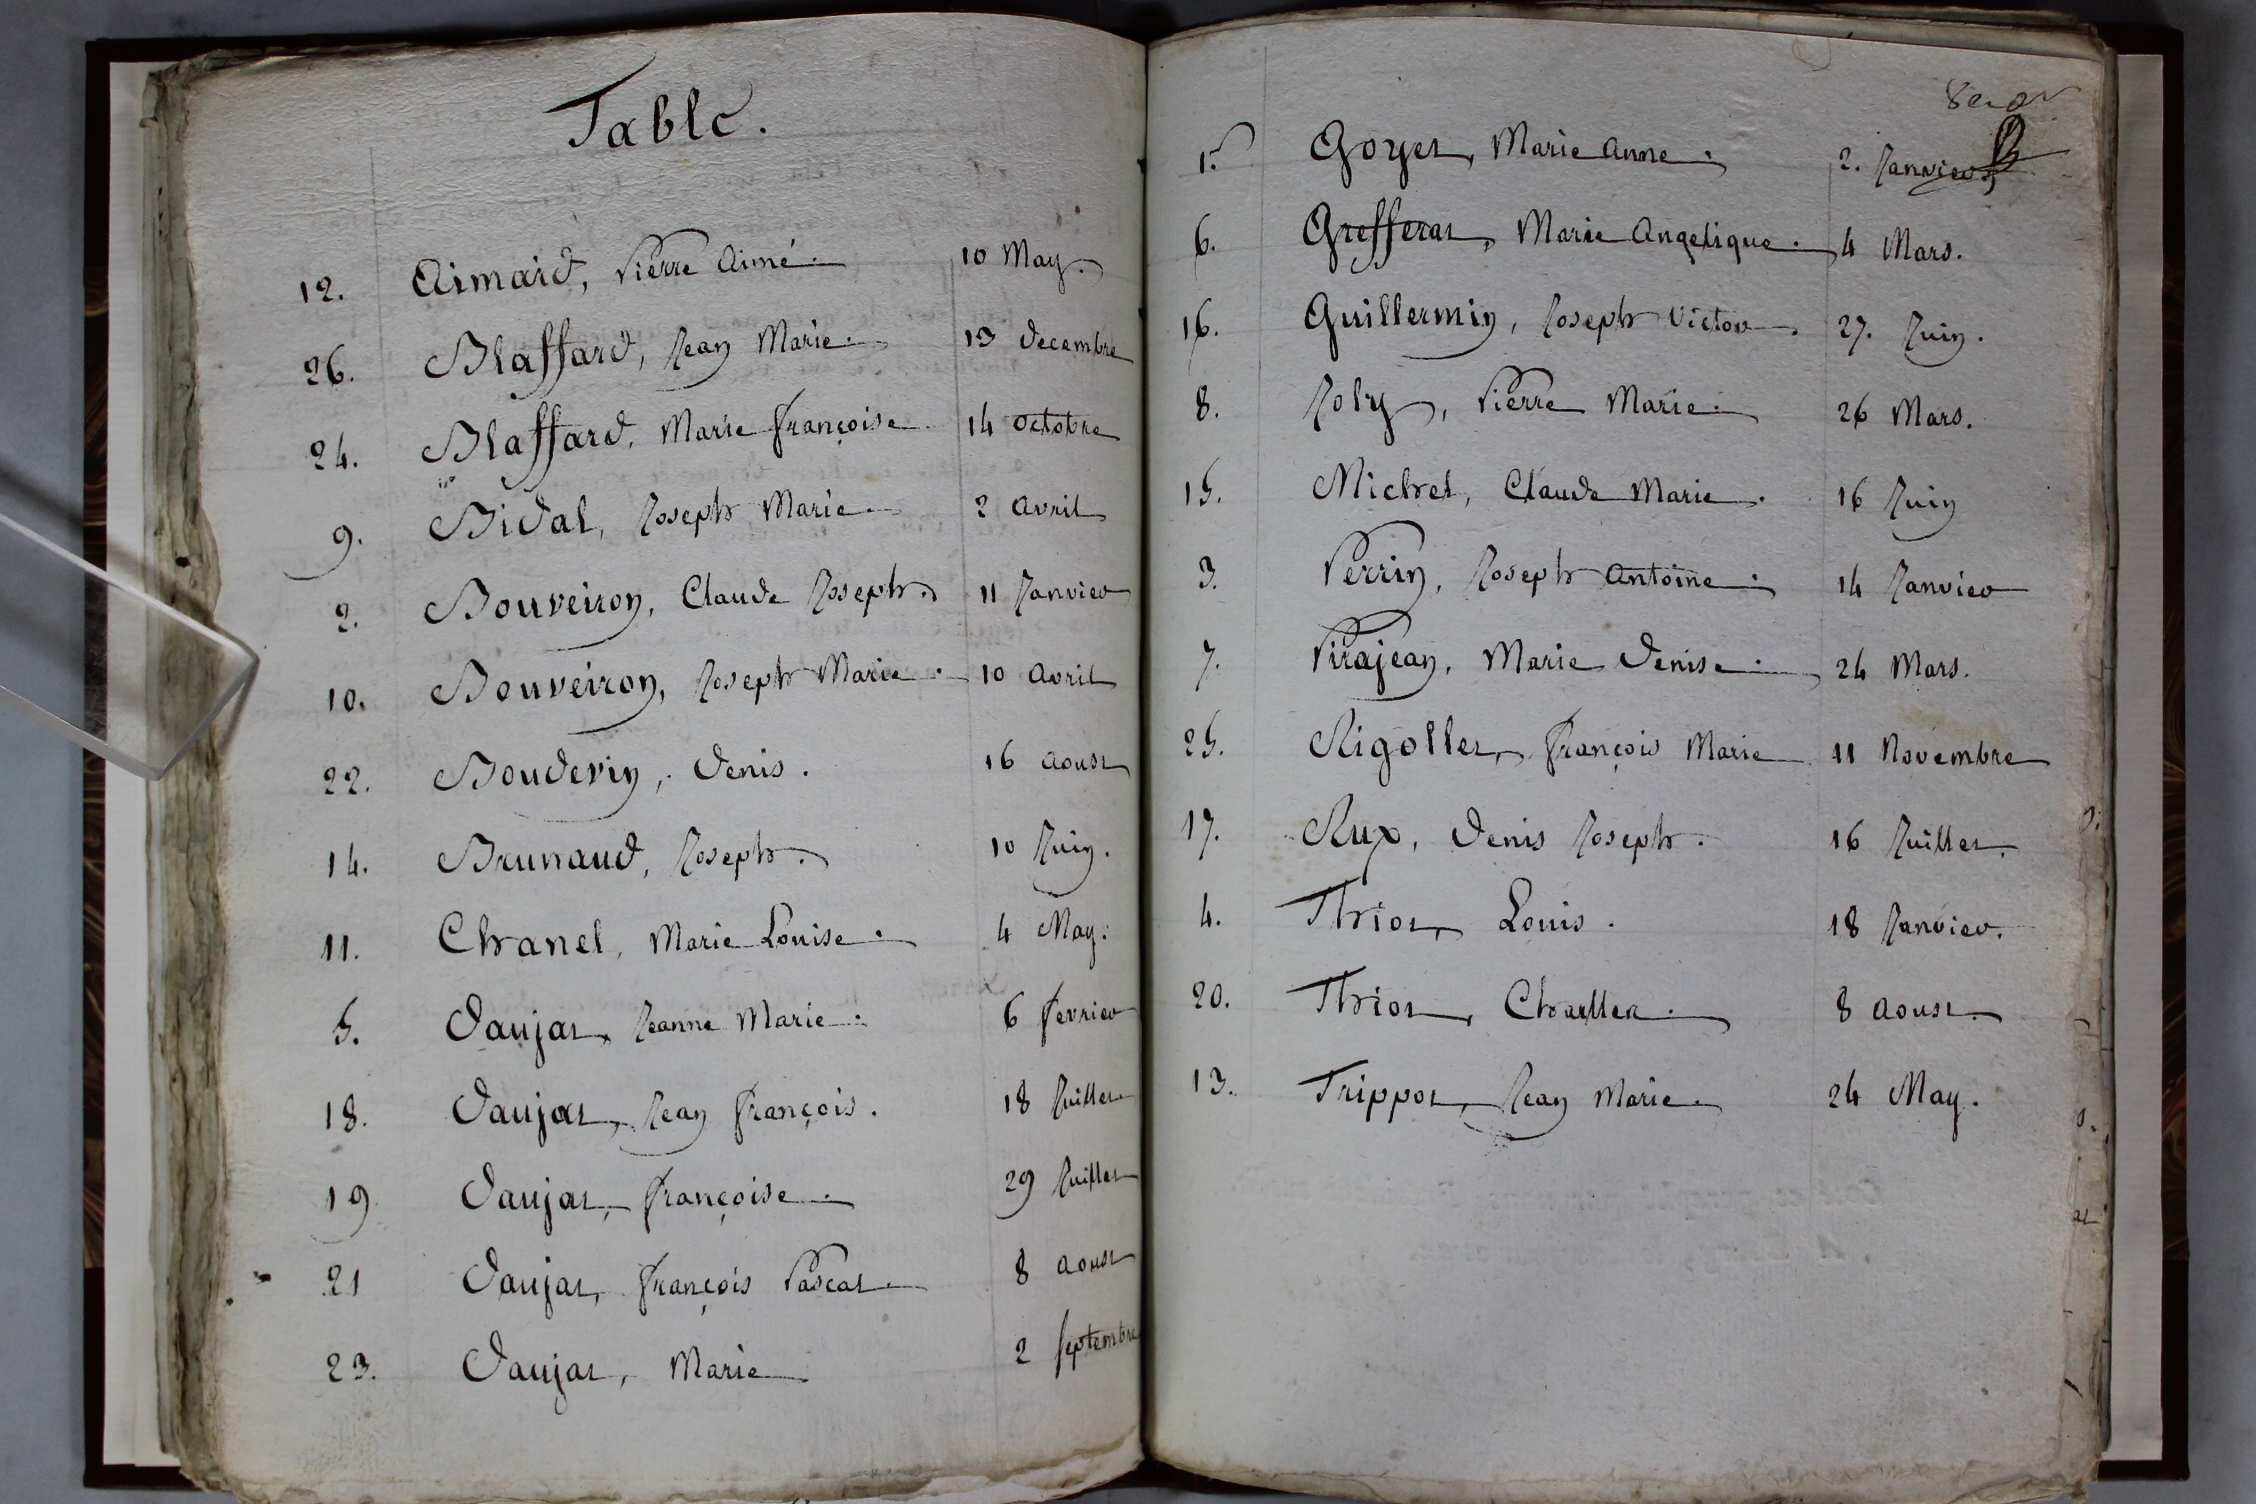 Table.
12. Aimard, Pierre Aimé. 10 May.
26. Blaffard, Jean Marie. 13 decembre
24. Blaffard, Marie françoise 14 octobre
9. Bidal, Joseph Marie. 2 avril
2. Bouveiron, Claude Joseph. 11 Janvier
10. Bouveiron, Joseph Marie. 10 avril
22. Boudevin, Denis. 16 aoust
14. Brunaud, Joseph. 10 Juin.
11. Chanel, Marie Louise. 4 May.
5. Daujat, Jeanne Marie. 6 fevrier
18. Daujat, Jean françois. 18 Juillet
19 Daujat, françoise. 29 Juillet
21 Daujat, françois Pascal. 8 aoust
23. Daujat, Marie 2 septembre
1. Goyet, Marie anne. 2. Janvier
6. Grefferat, Marie Angelique. 4 Mars.
16. Guillermin, Joseph Victor. 27. Juin.
8. Joly, Pierre Marie. 26 Mars.
15. Michel, Claude Marie. 16 Juin
3. Perrin, Joseph Antoine. 14 Janvier
7. Pirajean, Marie Denise. 24 Mars.
25. Rigollet, françois Marie 11 Novembre
17. Rux, Denis Joseph. 16 Juillet.
4. Thiot, Louis. 18 Janvier.
20. Thiot, 8 aoust.
13. Trippot, Jean Marie. 24 May.